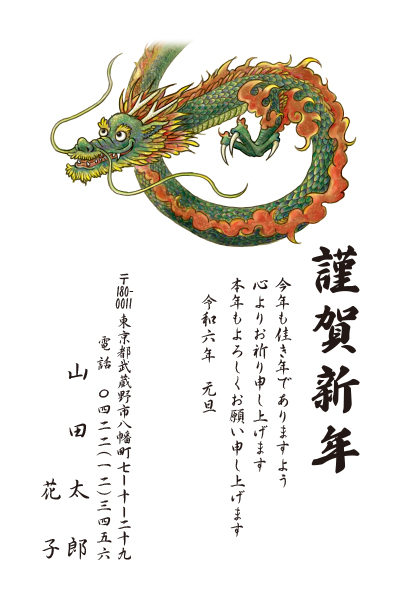 謹賀新年
今年も佳き年でありますよう
心よりお祈り申し上げます
本年もよろしくお願い申し上げます
令和六年 元旦
〒180-0011
東京都武蔵野市八幡町七ー十ー二十九
電話 〇四二二(一二)三四五六
山田太郎
花子